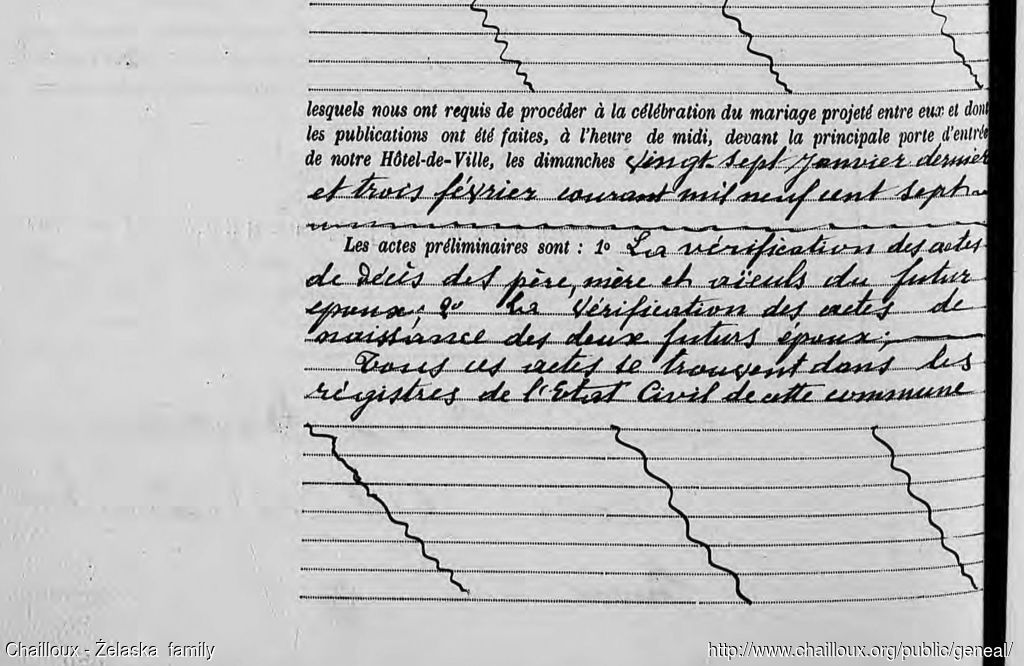 lesquels nous ont requis de procéder à la célébration du mariage projeté entre eux et dont
les publications ont été faites, à l'heure de midi, devant la principale porte d'entrée
de notre Hôtel-de-Ville, les dimanches vingt-sept Janvier dernier
et trois février courant mil neuf cent sept
Les actes préliminaires sont : 1º La vérification des actes
de Décès des père, mère et aïeuls du futur
époux; 2º La Vérification des actes de
naissance des deux futurs époux;
Tous ces actes se trouvent dans les
régistres de l'Etat Civil de cette commune
Chailloux - Żelaska family
http://www.chailloux.org/public/geneal/